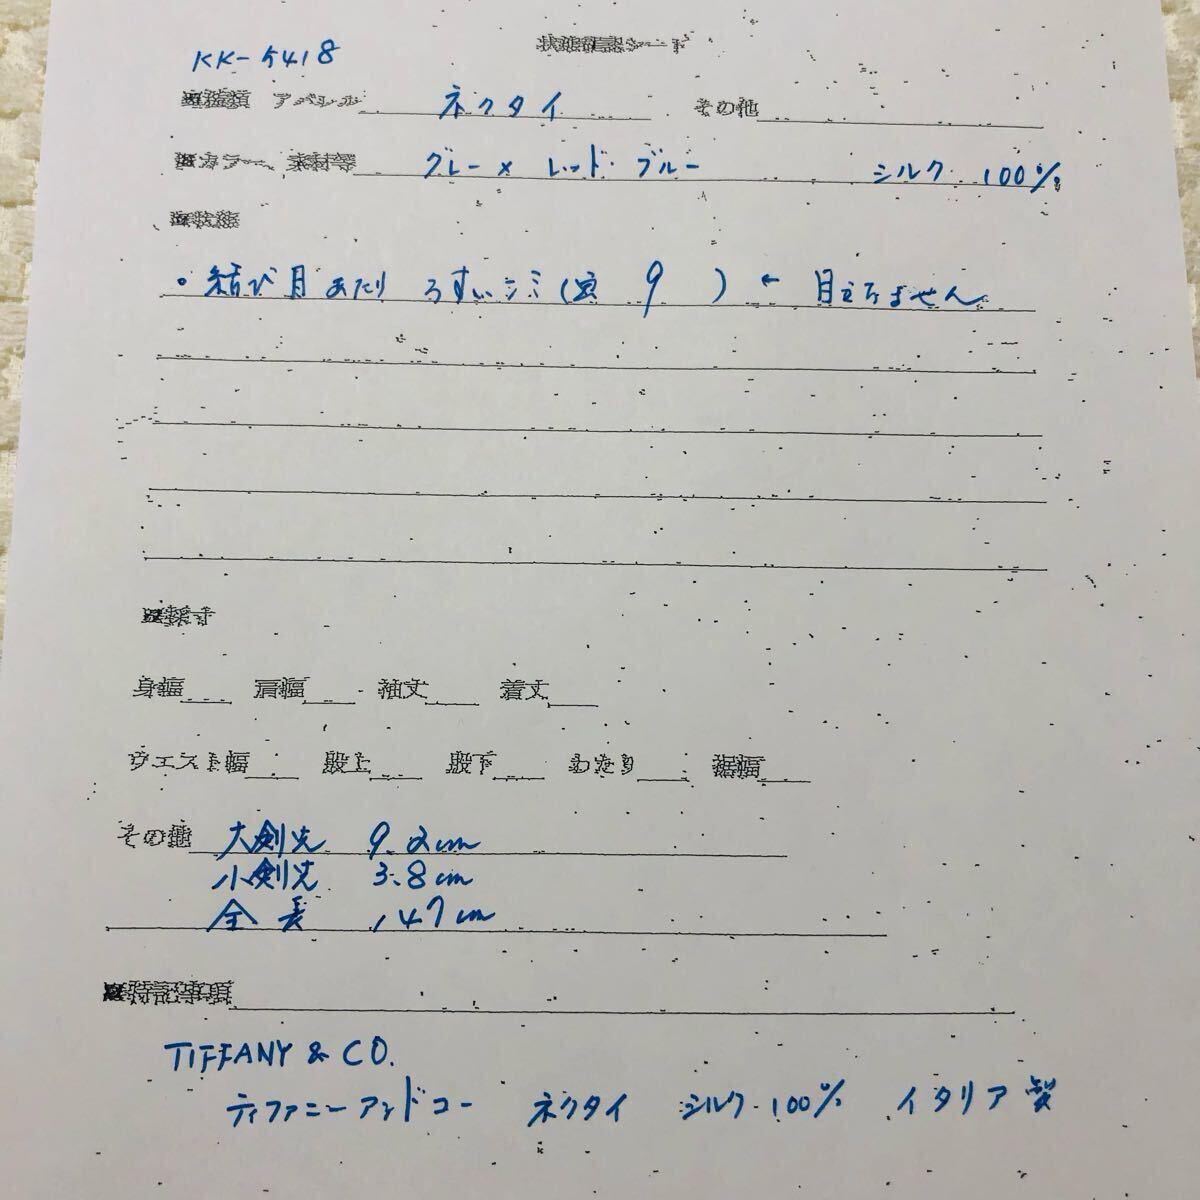 KK-5418
状態確認シート
■種類 アパレル ネクタイ その他
■カラー、素材等 グレー×レッド・ブルー シルク 100%
■状態
・結び目あたり うすいシミ( 9 ) ← 目立ちません
■採寸
身幅 肩幅 袖丈 着丈
ウエスト幅 股上 股下 わたり 裾幅
その他 大剣先 9.2cm
小剣先 3.8cm
全長 147cm
■特記事項
TIFFANY & CO.
ティファニーアンドコー ネクタイ シルク 100% イタリア製